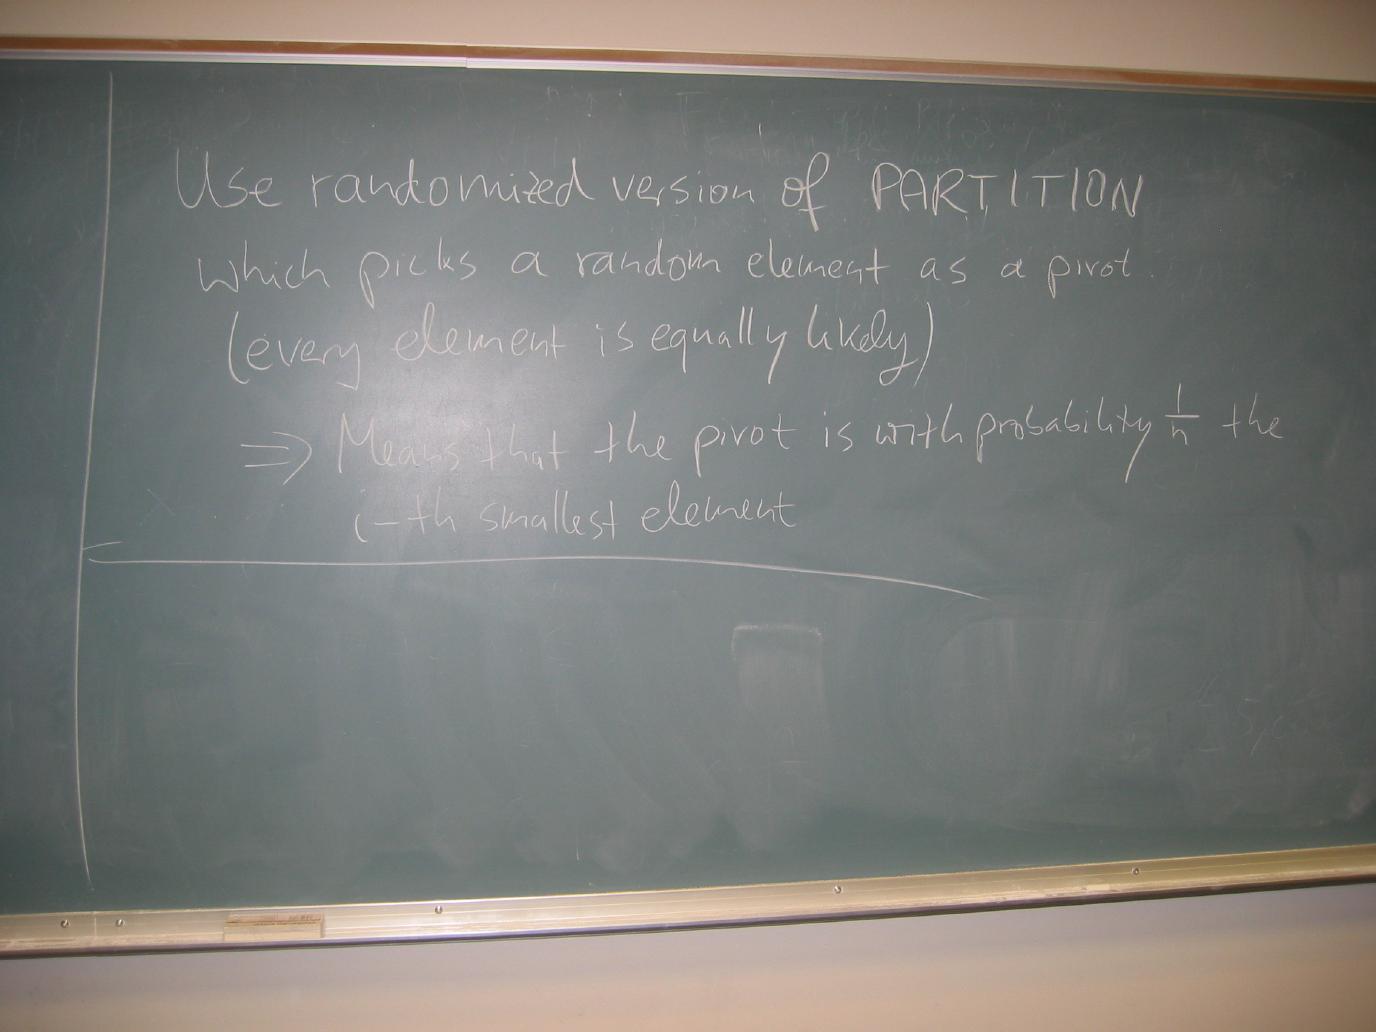 Use randomized version of PARTITION
which picks a random element as a pivot.
(every element is equally likely)
⇒ Means that the pivot is with probability 1/n the
i-th smallest element